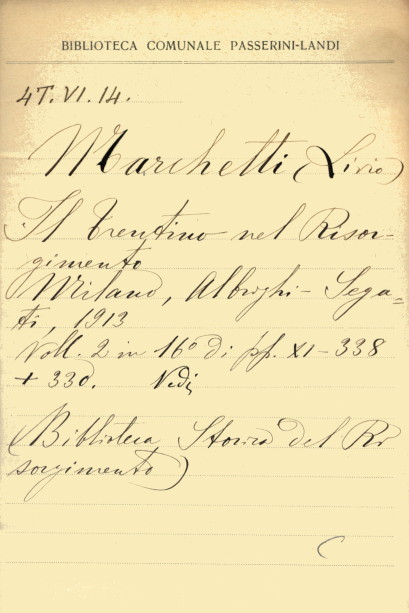 BIBLIOTECA COMUNALE PASSERINI-LANDI
4T.VI.14.
Marchetti (Livio)
Il Trentino nel Risor-
gimento
Milano, Albrighi-Sega=
ti, 1913
Voll. 2 in 16º di pp. XI-338
+ 330. Vedi
(Biblioteca Storica del Ri
sorgimento)